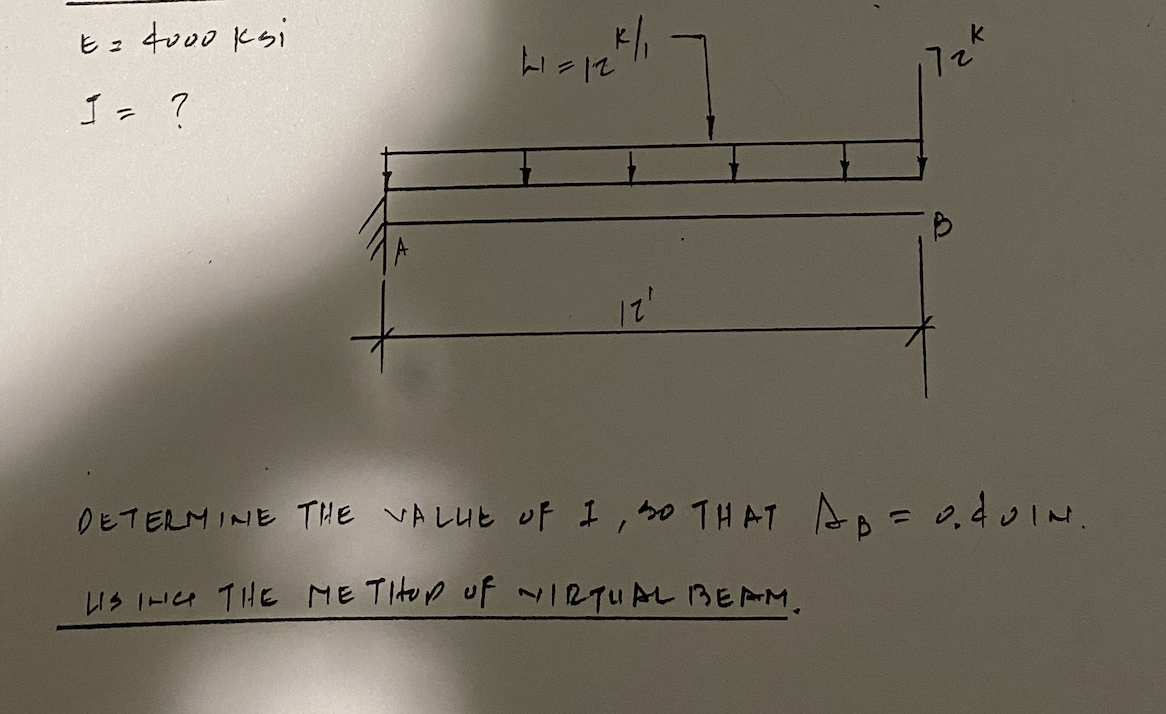 E = 4000 ksi
I = ?
W = 12 k/'
72 k
A
B
12'
DETERMINE THE VALUE OF I, SO THAT Δ B = 0.40 IN.
USING THE METHOD OF VIRTUAL BEAM.